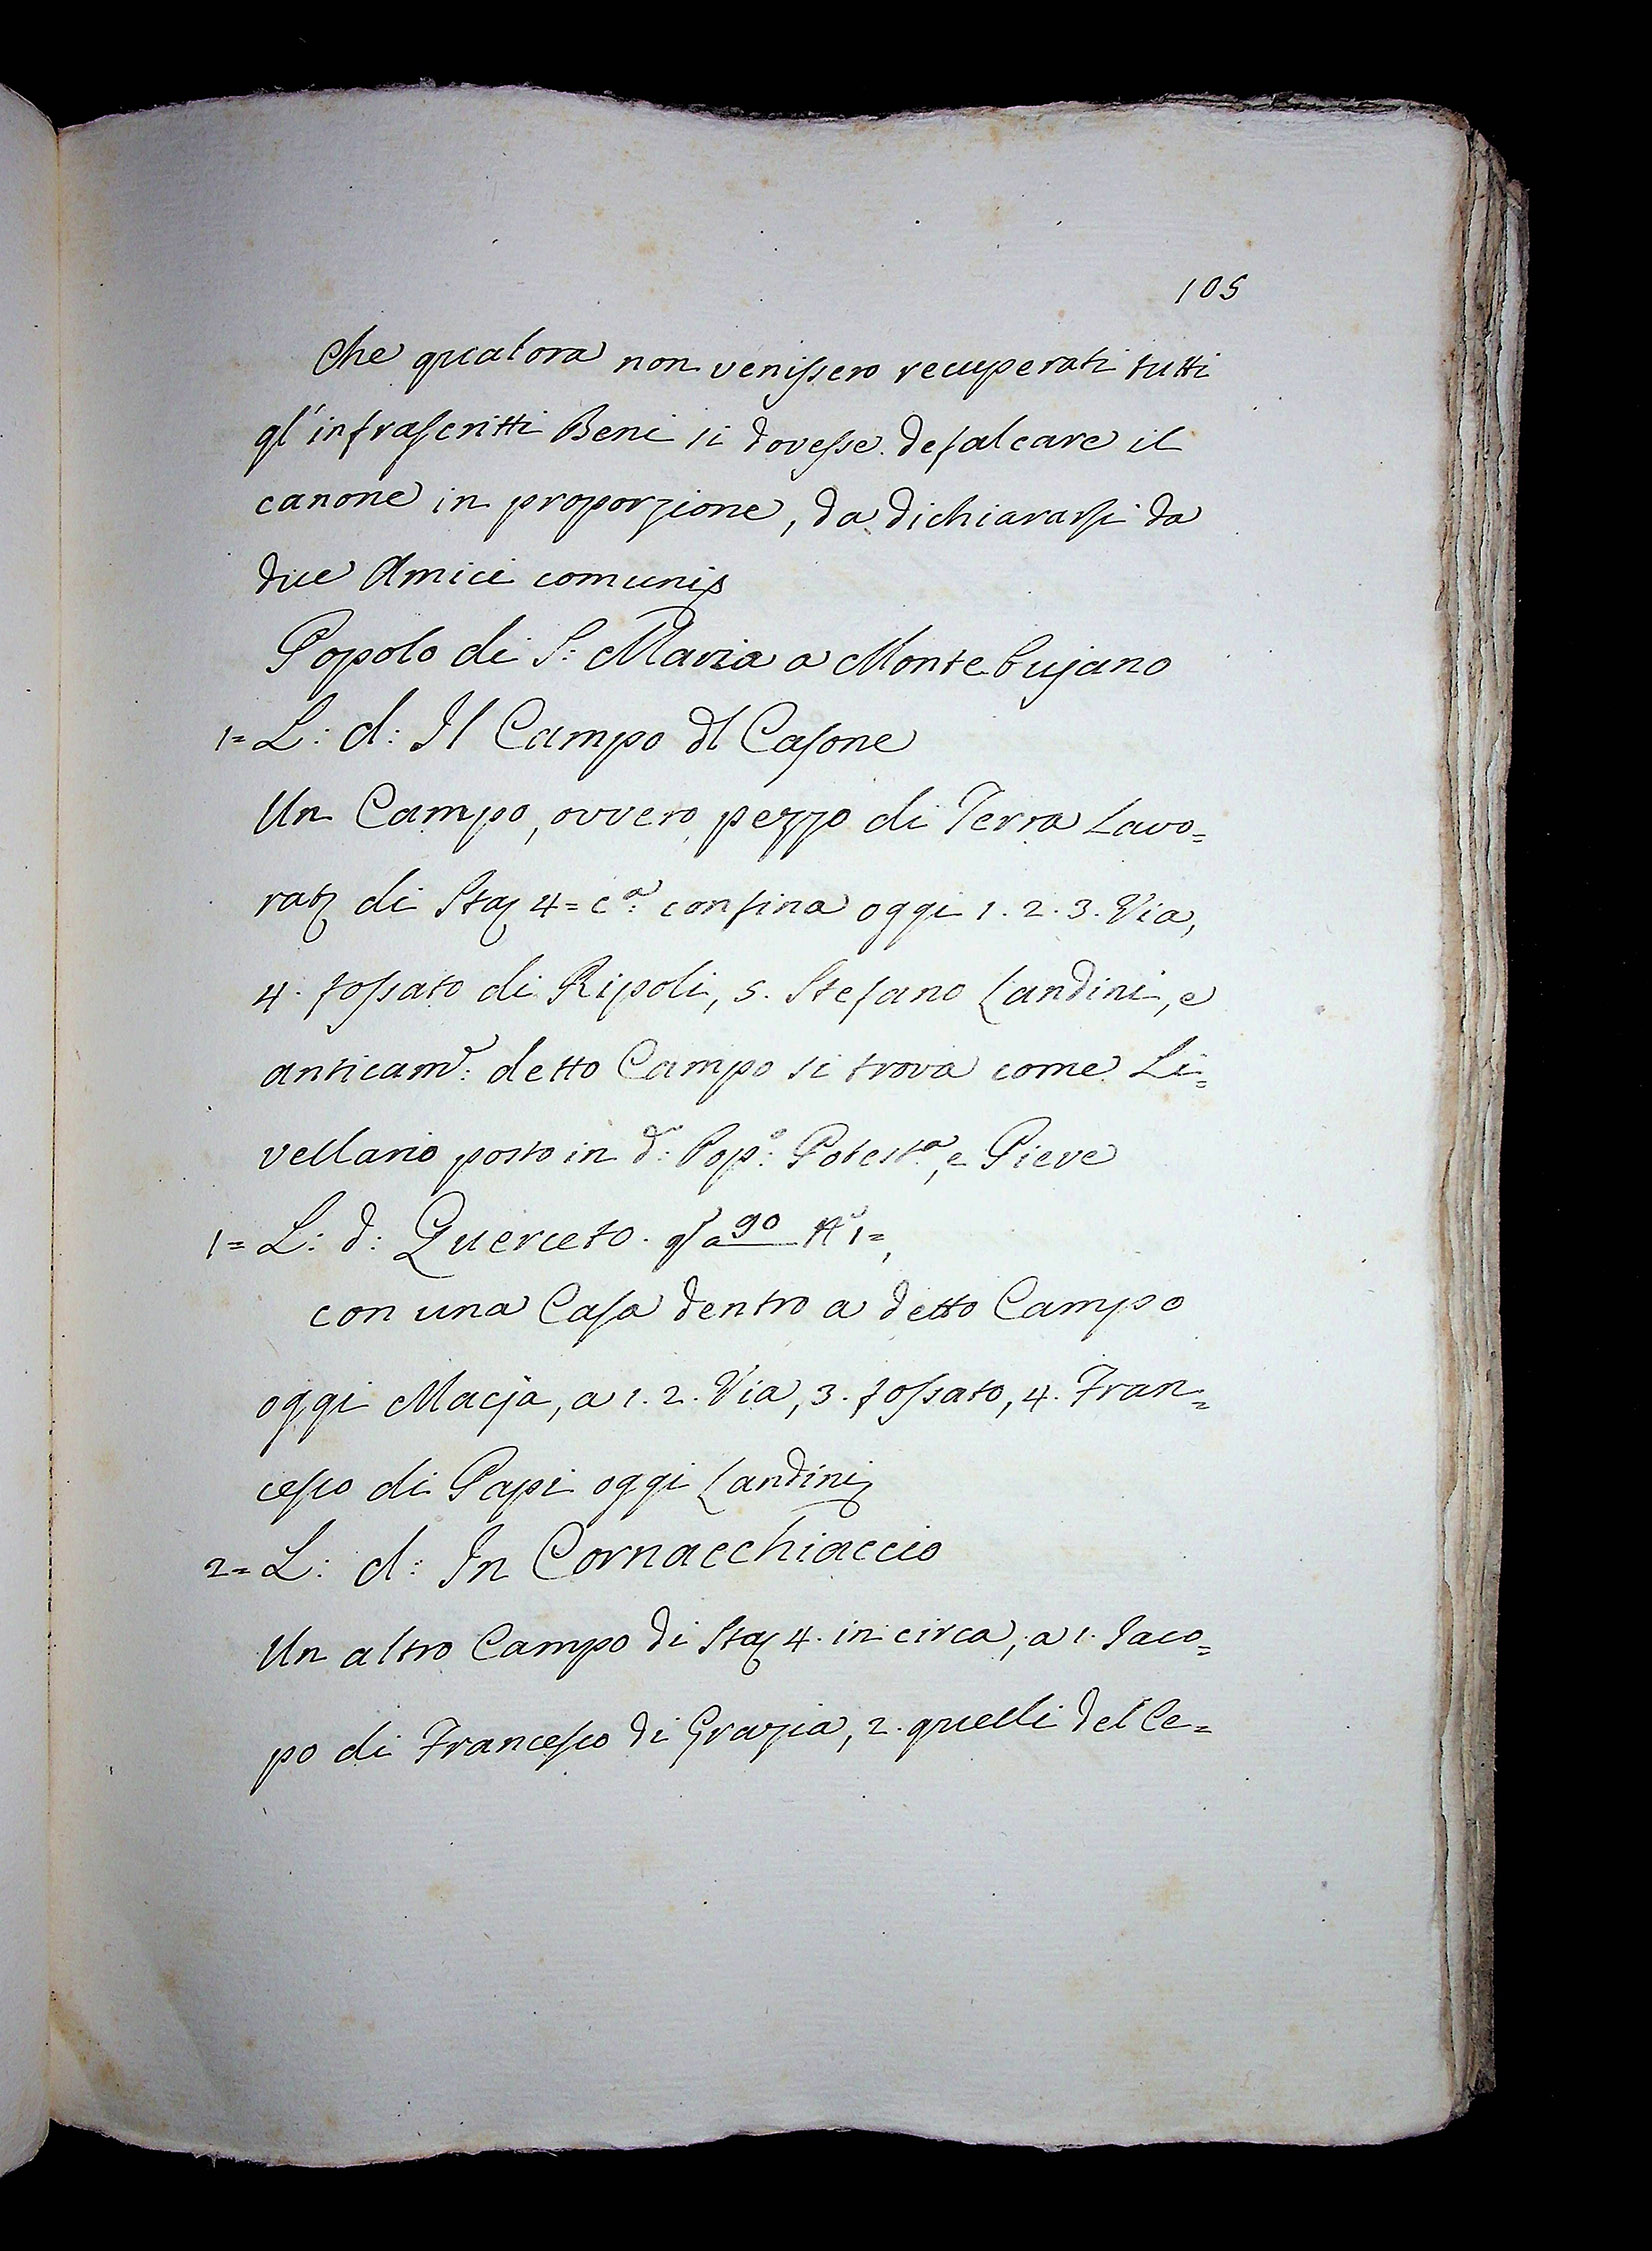 105
Che qualora non venissero recuperati tutti
gl'infrascritti Beni si dovesse defalcare il
canone in proporzione, da dichiararsi da
due Amici comuni
Popolo di S: Maria a Montebujano
1= L: d: Il Campo dl Casone
Un Campo, ovvero pezzo di Terra Lavo=
rat di Sta 4= cª: confina oggi 1. 2. 3. Via,
4. fossato di Ripoli, 5. Stefano Landini, e
anticamᵉ: detto Campo si trova come Li=
vellario posto in dº: Popº: Potestª, e Pieve
1= L: d: Querceto. 90 Nº 1=,
con una Casa dentro a detto Campo
oggi Macja, a 1. 2. Via, 3. fossato, 4. Fran=
cesco di Papi oggi Landini
2= L: d: In Cornacchiaccio
Un altro Campo di Sta 4. in circa, a 1. Jaco=
po di Francesco di Grazia, 2. quelli del Ce=